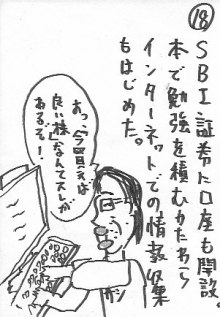 ⑱
SBI証券に口座も開設。
本で勉強を積むかたわら
インターネットでの情報収集
もはじめた。
あっ、「今買えば
良い株」なんてスレが
あるぞ!
ガシ